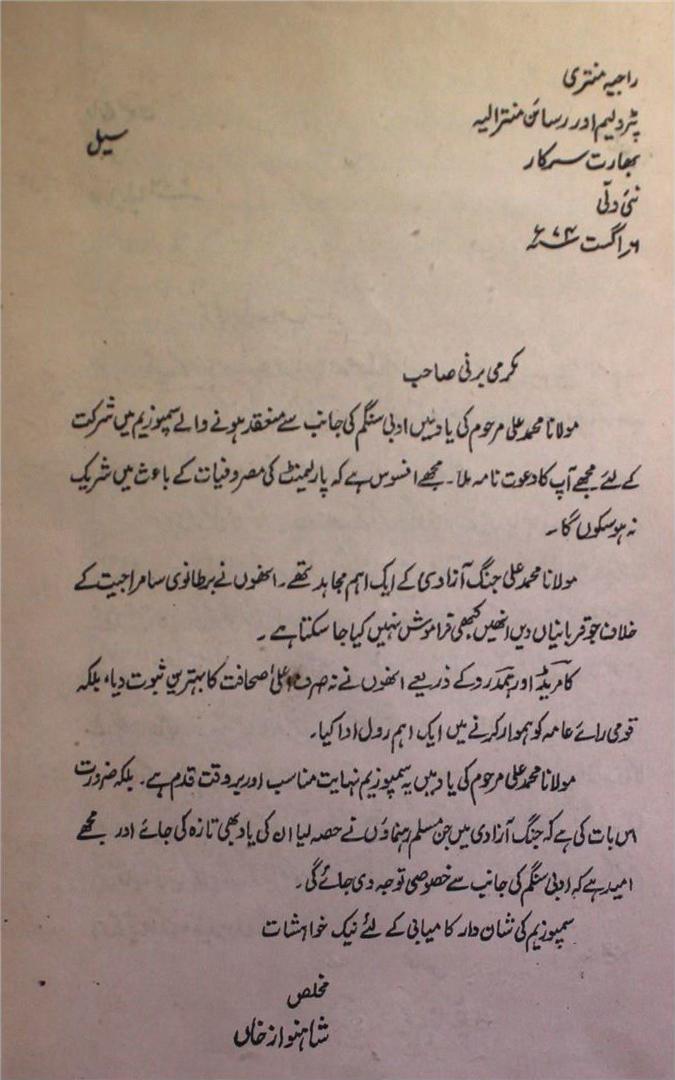 راجیہ منتری
پٹرولیم اور رسائن منترالیہ
سیل
بھارت سرکار
نئی دلّی
۶ر اگست ۷۴ء
مکرمی برنی صاحب
مولانا محمد علی مرحوم کی یاد میں ادبی سنگم کی جانب سے منعقد ہونے والے سمپوزیم میں شرکت
کے لئے مجھے آپ کا دعوت نامہ ملا۔ مجھے افسوس ہے کہ پارلیمنٹ کی مصروفیات کے باعث میں شریک
نہ ہو سکوں گا۔
مولانا محمد علی جنگ آزادی کے ایک اہم مجاہد تھے۔ انھوں نے برطانوی سامراجیت کے
خلاف جو قربانیاں دیں انھیں کبھی فراموش نہیں کیا جا سکتا ہے۔
کامریڈ اور ہمدرد کے ذریعے انھوں نے نہ صرف اعلیٰ صحافت کا بہترین ثبوت دیا، بلکہ
قومی رائے عامہ کو ہموار کرنے میں ایک اہم رول ادا کیا۔
مولانا محمد علی مرحوم کی یاد میں یہ سمپوزیم نہایت مناسب اور بروقت قدم ہے۔ بلکہ ضرورت
اس بات کی ہے کہ جنگ آزادی میں جن مسلم رہنماؤں نے حصہ لیا ان کی یاد بھی تازہ کی جائے اور مجھے
امید ہے کہ ادبی سنگم کی جانب سے خصوصی توجہ دی جائے گی۔
سمپوزیم کی شان دار کامیابی کے لئے نیک خواہشات
مخلص
شاہنواز خاں